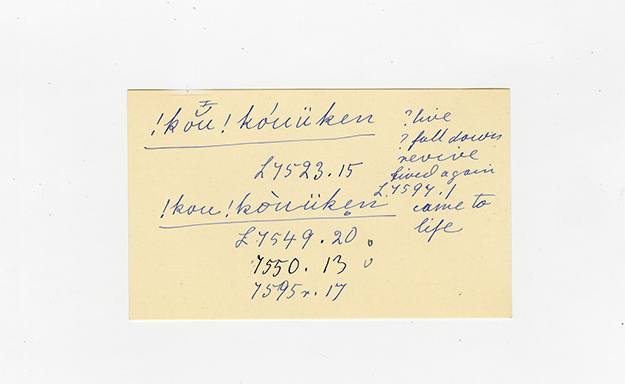 !kou̯ !kóuüken
? live
? fall down
revive
L 7523.15
lived again
L.7594.1
!kou !kòuüken
came to
life
L 7549.20
7550.13
7595r.17